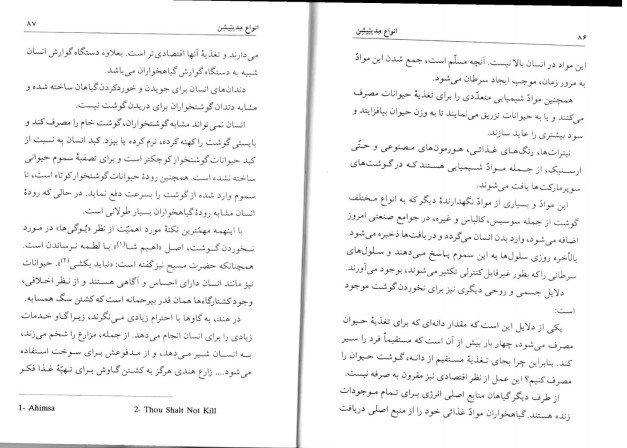 ۸۶ انواع مدیتیشن
این مواد در انسان بالا نیست. آنچه مسلّم است، جمع شدن این موادّ
به مرور زمان، موجب ایجاد سرطان می‌شود.
همچنین موادّ شیمیایی متعدّدی را برای تغذیهٔ حیوانات مصرف
می‌کنند و یا به حیوانات تزریق می‌نمایند تا به وزن حیوان بیافزایند و
سود بیشتری را عاید سازند.
نیترات‌ها، رنگ‌های غذائی، هورمون‌های مصنوعی و حتّی
ارسنیک، از جمله موادّ شیمیایی هستند که در گوشت‌های
سوپرمارکت‌ها یافت می‌شوند.
این موادّ و بسیاری از موادّ نگهدارندهٔ دیگر که به انواع مختلف
گوشت از جمله سوسیس، کالباس و غیره، در جوامع صنعتی امروز
اضافه می‌شود، وارد بدن انسان می‌گردد و در بافت‌ها ذخیره می‌شود.
بالأخره روزی سلول‌ها به این سموم پاسخ می‌دهند و سلول‌های
سرطانی را که بطور غیرقابل کنترلی تکثیر می‌شوند، بوجود می‌آورند.
دلایل جسمی و روحی دیگری نیز برای نخوردن گوشت موجود
است:
یکی از دلایل این است که مقدار دانه‌ای که برای تغذیهٔ حیوان
مصرف می‌شود، چهار بار بیش از آن است که مستقیماً فرد را سیر
کند. بنابراین چرا بجای تغذیهٔ مستقیم از دانه، گوشت حیوان را
مصرف کنیم؟ این عمل از نظر اقتصادی نیز مقرون به صرفه نیست.
از طرف دیگر گیاهان منابع اصلی انرژی برای تمام موجودات
زنده هستند. گیاهخواران موادّ غذائی خود را از منبع اصلی دریافت
انواع مدیتیشن ۸۷
می‌دارند و تغذیهٔ آنها اقتصادی‌تر است. بعلاوه دستگاه گوارش انسان
شبیه به دستگاه گوارش گیاهخواران می‌باشد.
دندان‌های انسان برای جویدن و خورد‌کردن گیاهان ساخته شده و
مشابه دندان گوشتخواران برای دریدن گوشت نیست.
انسان نمی‌تواند مشابه گوشتخواران، گوشت خام را مصرف کند و
بایستی گوشت را کهنه کرده، نرم کرده یا بپزد. کبد انسان به نسبت از
کبد حیوانات گوشتخوار کوچکتر است و برای تصفیهٔ سموم حیوانی
ساخته نشده است. همچنین رودهٔ حیوانات گوشتخوار کوتاه است، تا
سموم وارد شده از گوشت را بسرعت دفع نماید. در حالی که رودهٔ
انسان مشابه رودهٔ گیاهخواران بسیار طولانی است.
با اینهمه مهمّترین نکتهٔ مورد اهمیّت از نظر «یُوگی‌ها» در مورد
نخوردن گوشت، اصل «اهیم شا(۱)» یا لطمه نرساندن است.
همچنانکه حضرت مسیح نیز گفته است: «نباید بکشی(۲)». حیوانات
نیز مانند انسان دارای احساس و آگاهی هستند و از نظر اخلاقی،
وجود کشتارگاه‌ها همان قدر بیرحمانه است که کشتن سگ همسایه.
در هند، به گاوها با احترام زیادی می‌نگرند، زیرا گاو خدمات
زیادی را برای انسان انجام می‌دهد. از جمله، مزارع را شخم می‌زند،
به انسان شیر می‌دهد، و از مدفوعش برای سوخت استفاده
می‌شود.... زارع هندی هرگز به کشتن گاوش برای تهیّهٔ غذا فکر
1- Ahimsa 2- Thou Shalt Not Kill